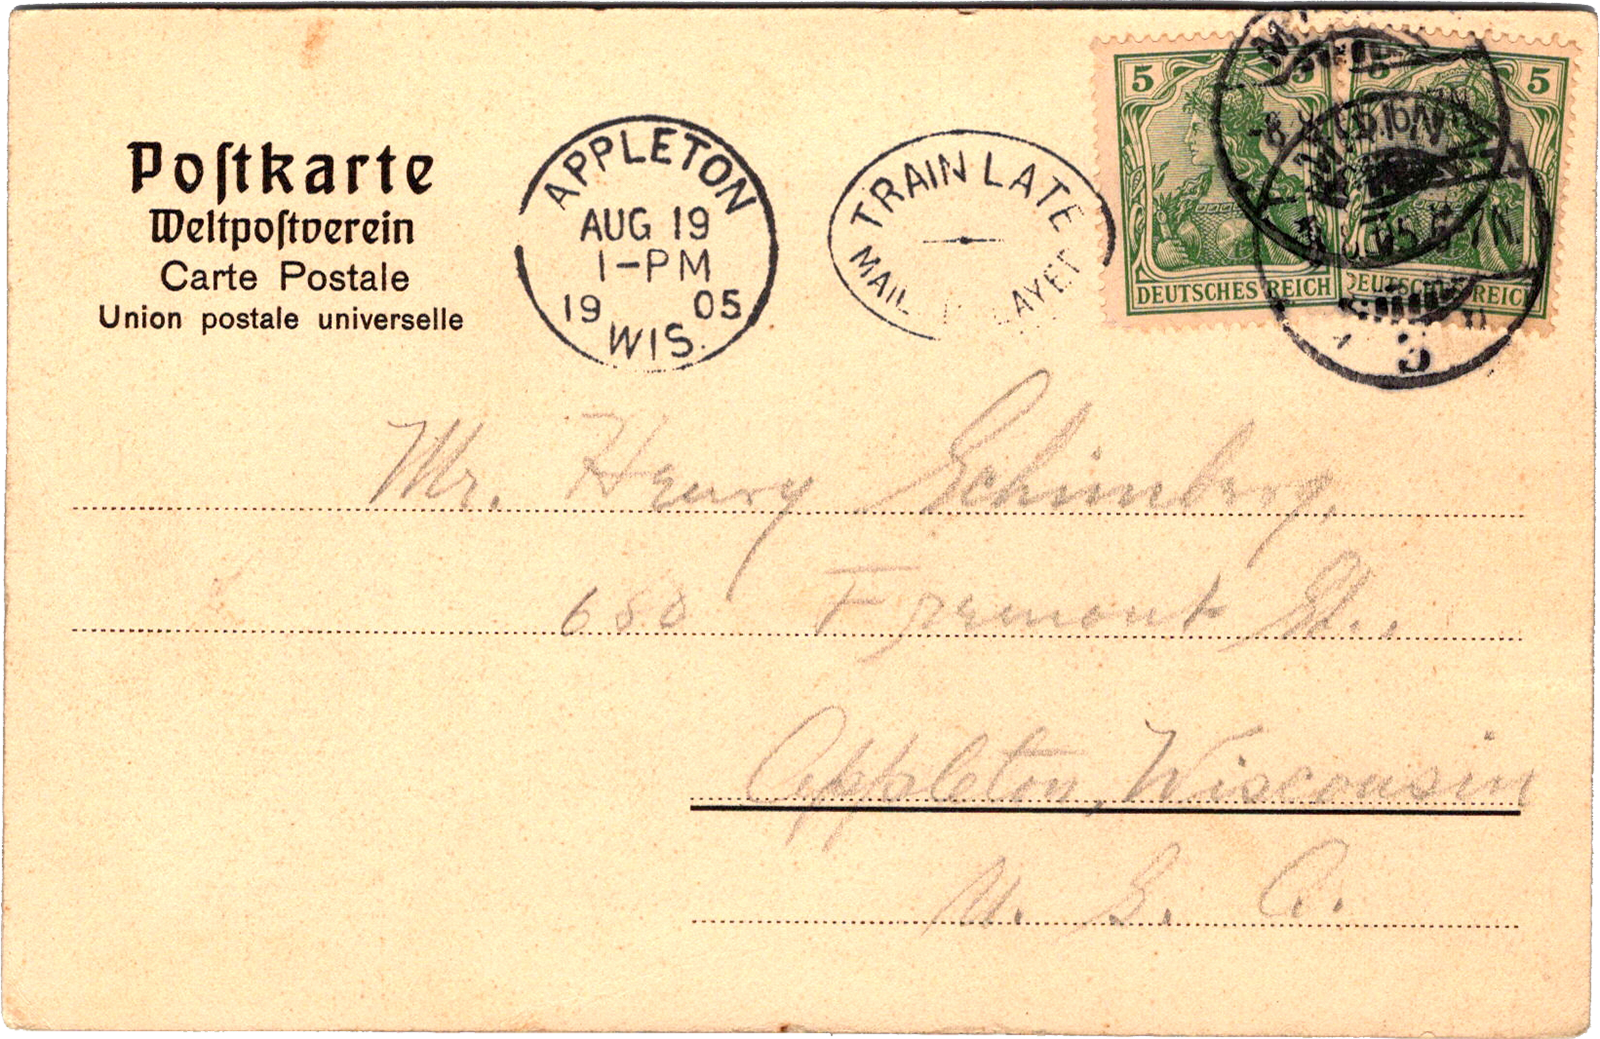 Poſtkarte
Weltpoſtverein
Carte Postale
Union postale universelle
APPLETON
AUG 19
1-PM
19 05
WIS.
TRAIN LATE
MAIL
5 5
DEUTSCHES REICH
DEUTSCHES REICH
3
Mr. Henry Schimberg,
680 Fremont St.,
Appleton, Wisconsin
U. S. A.